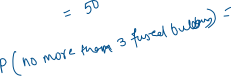 = 50
P(no more than 3 fused bulbs) =